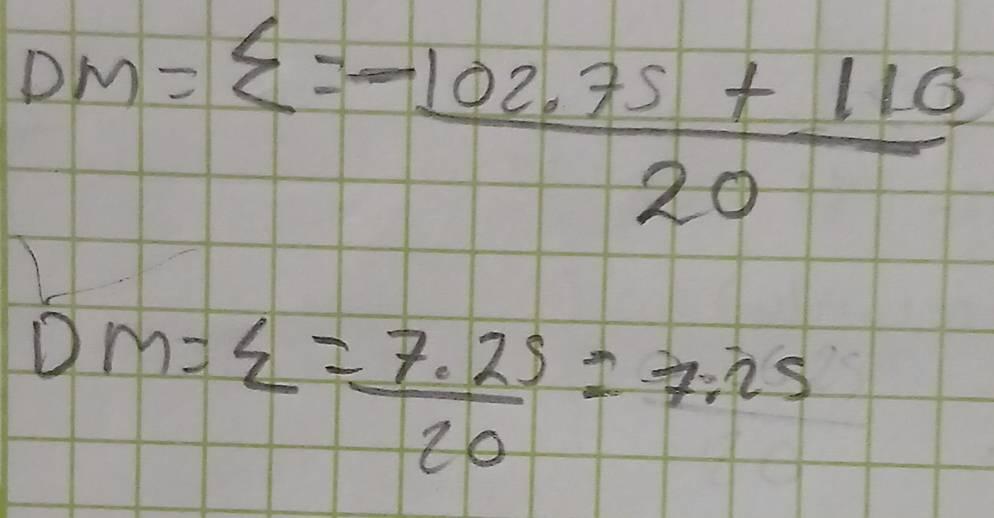 DM = Σ = -102.75 + 110
20
DM = Σ = 7.25 = 7.25
20